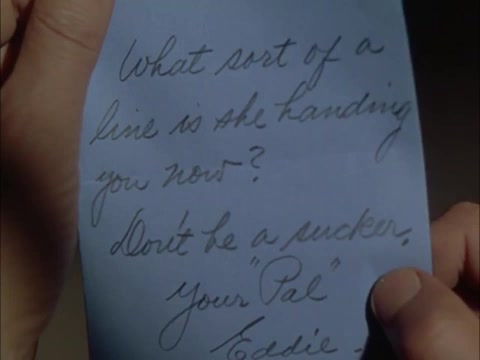 What sort of a
line is she handing
you now?
Don't be a sucker.
Your "Pal"
Eddie -